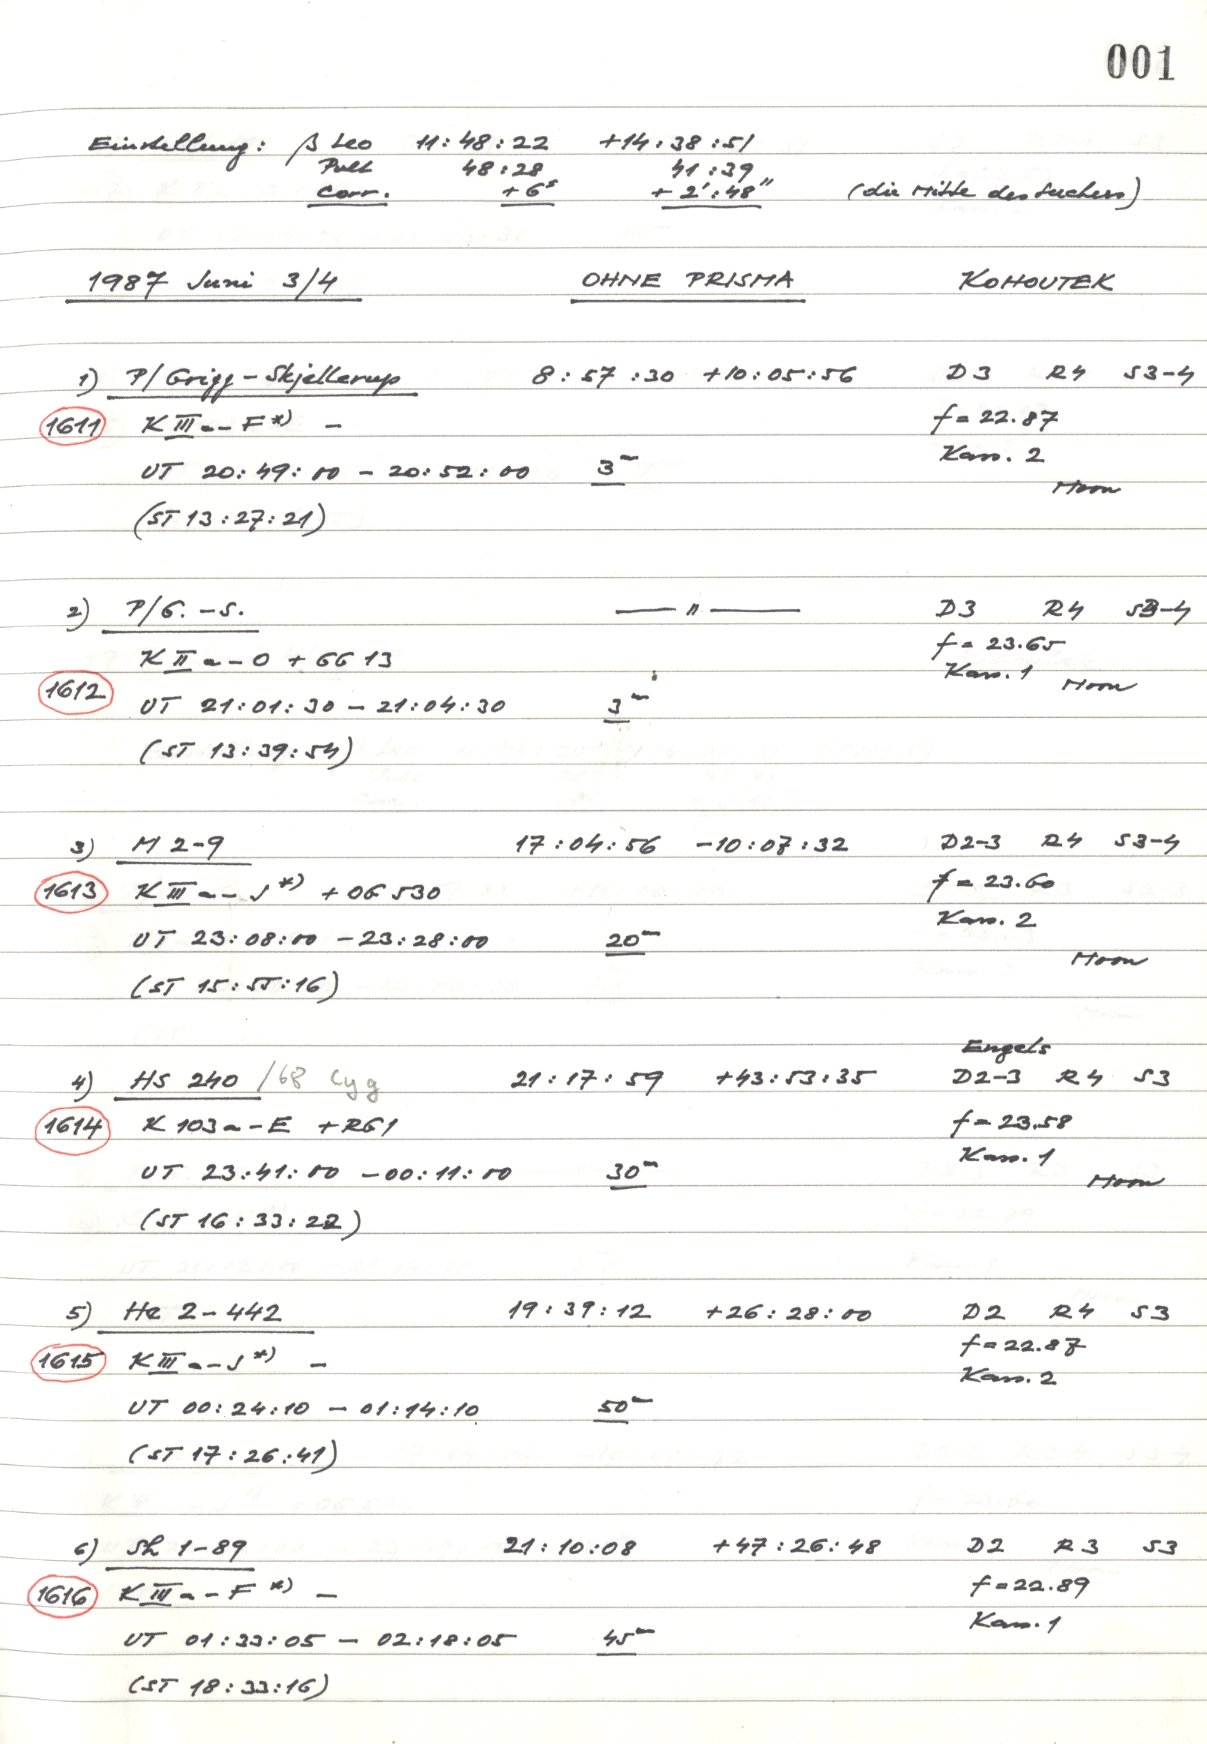 001
Einstellung: β Leo 11:48:22 +14:38:51
Pult 48:28 41:39
Corr. +6ˢ +2':48" (die Mitte des Suchers)
1987 Juni 3/4 OHNE PRISMA KOHOUTEK
1) P/Grigg-Skjellerup 8:57:30 +10:05:56 D3 R4 S3-4
1611 K III a - F*) - f = 22.87
Kass. 2
UT 20:49:00 - 20:52:00 3ᵐ Moon
(ST 13:27:21)
2) P/G.-S. —— " —— D3 R4 S3-4
f = 23.65
K II a - O + GG 13 Kass. 1
1612 UT 21:01:30 - 21:04:30 3ᵐ Moon
(ST 13:39:54)
3) M 2-9 17:04:56 -10:07:32 D2-3 R4 S3-4
1613 K III a - J*) + OG 530 f = 23.60
Kass. 2
UT 23:08:00 - 23:28:00 20ᵐ Moon
(ST 15:55:16)
Engels
4) HS 240 /68 Cyg 21:17:59 +43:53:35 D2-3 R4 S3
1614 K 103a - E + RG1 f = 23.58
Kass. 1
UT 23:41:00 - 00:11:00 30ᵐ Moon
(ST 16:33:22)
5) He 2-442 19:39:12 +26:28:00 D2 R4 S3
f = 22.87
1615 K III a - J*) - Kass. 2
UT 00:24:10 - 01:14:10 50ᵐ
(ST 17:26:41)
6) Sh 1-89 21:10:08 +47:26:48 D2 R3 S3
1616 K III a - F*) - f = 22.89
Kass. 1
UT 01:33:05 - 02:18:05 45ᵐ
(ST 18:33:16)